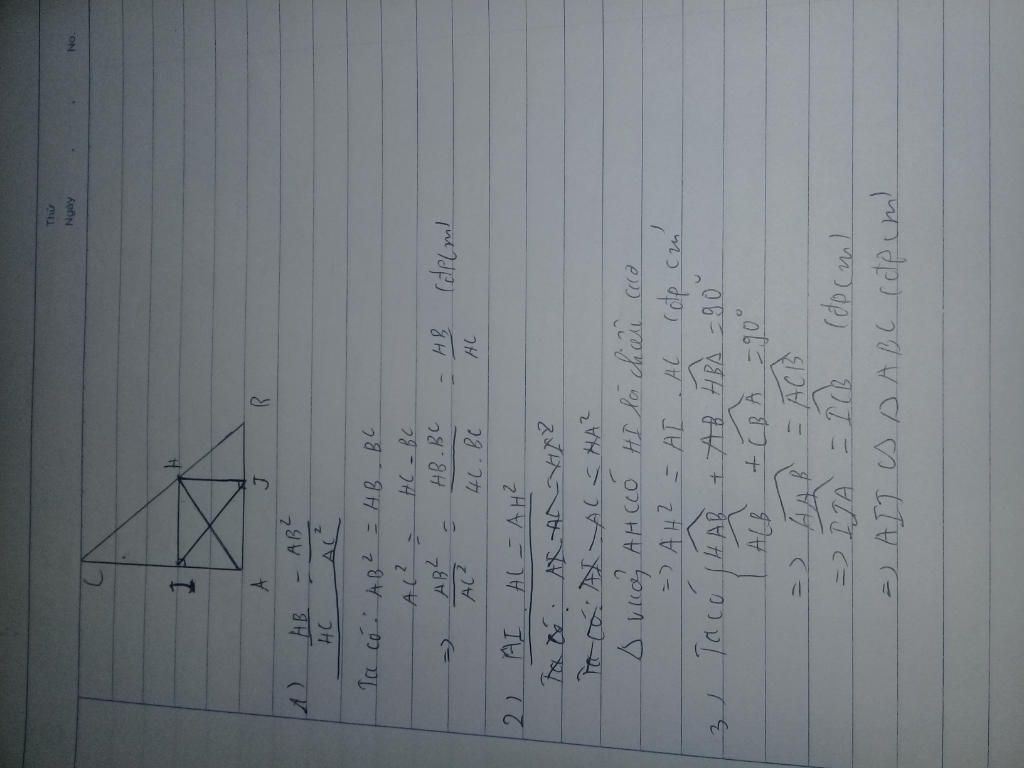 Thứ
Ngày . . No.
C
I H
A J B
1) HB/HC = AB²/AC²
Ta có: AB² = HB.BC
AC² = HC - BC
=> AB²/AC² = HB.BC/HC.BC = HB/HC (đpcm)
2) AI AC = AH²
Δ vuông AHC có HI là chiều cao
=> AH² = AI . AC (đpcm)
3.) Ta có { HAB + HBA = 90°
ACB + CBA = 90°
=> HAB = ACB
=> IJA = ICB (đpcm)
=> AIJ ∽ Δ ABC (đpcm)